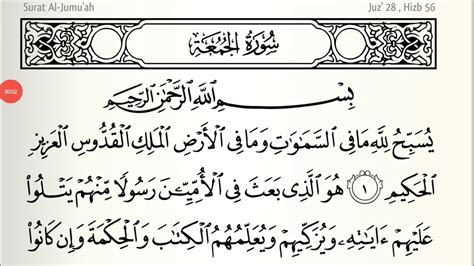 Surat Al-Jumu'ah Juz' 28 , Hizb 56
سُورَةُ الجُمُعَةِ
00:02
بِسْمِ اللَّهِ الرَّحْمَٰنِ الرَّحِيمِ
يُسَبِّحُ لِلَّهِ مَا فِي السَّمَٰوَٰتِ وَمَا فِي الْأَرْضِ الْمَلِكِ الْقُدُّوسِ الْعَزِيزِ
الْحَكِيمِ ١ هُوَ الَّذِي بَعَثَ فِي الْأُمِّيِّـۧنَ رَسُولًا مِّنْهُمْ يَتْلُوا۟
عَلَيْهِمْ ءَايَٰتِهِۦ وَيُزَكِّيهِمْ وَيُعَلِّمُهُمُ الْكِتَٰبَ وَالْحِكْمَةَ وَإِن كَانُوا۟